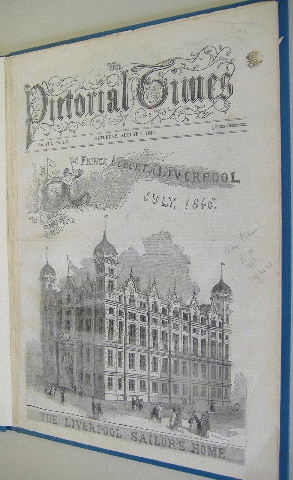 The
Pictorial Times
SATURDAY, AUGUST
PRINCE ALBERT LIVERPOOL
JULY, 1846.
THE LIVERPOOL SAILOR'S HOME.